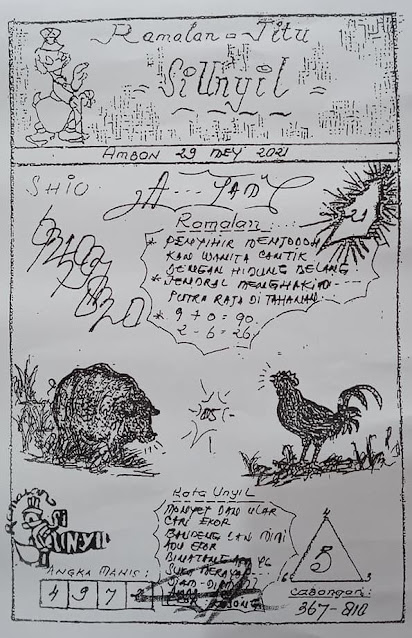 Ramalan = Jitu
= SiUnyil =
AMBON 29 MEY 2021
SHIO
21
Ramalan
* PENYIHIR MENJODOH
KAN WANITA CANTIK
DENGAN HIDUNG BELANG
* JENDRAL MENGHAKIMI
PUTRA RAJA DI TAHANAN
* 9 + 0 = 90
2 - 6 = 26
Kata Unyil
MONYET DAN ULAR
CARI EKOR
BANDENG LAN MIMI
ADU EKOR
BINATANG APA YG
SUKA MERAYAP
DIAM-DIAM
KOSONG
Ramalan
SI
UNYIL
ANGKA MANIS:
4 9 7
4
5
6 3
Cabangan:
367-810